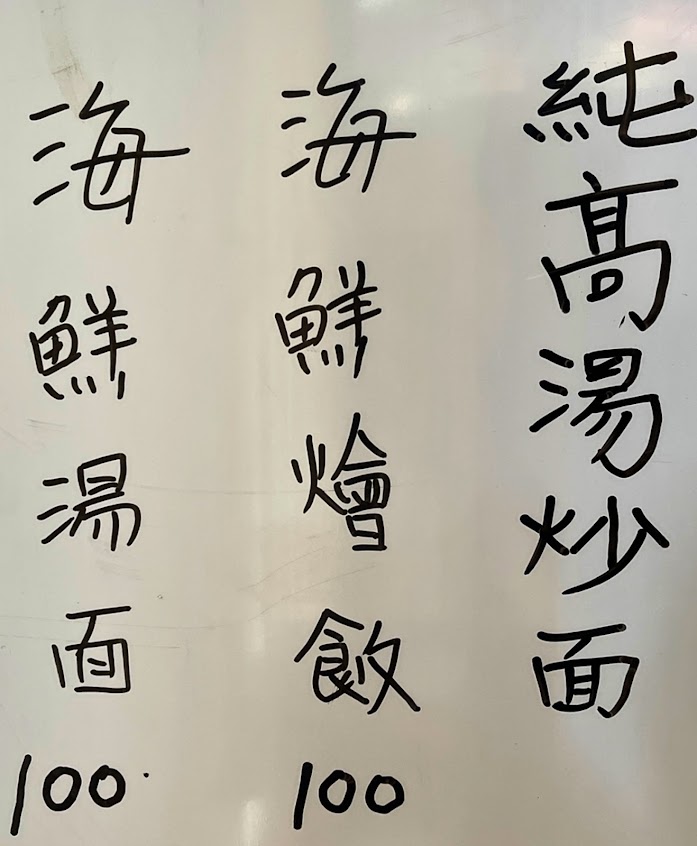 純高湯炒面
海鮮燴飯
100
海鮮湯面
100